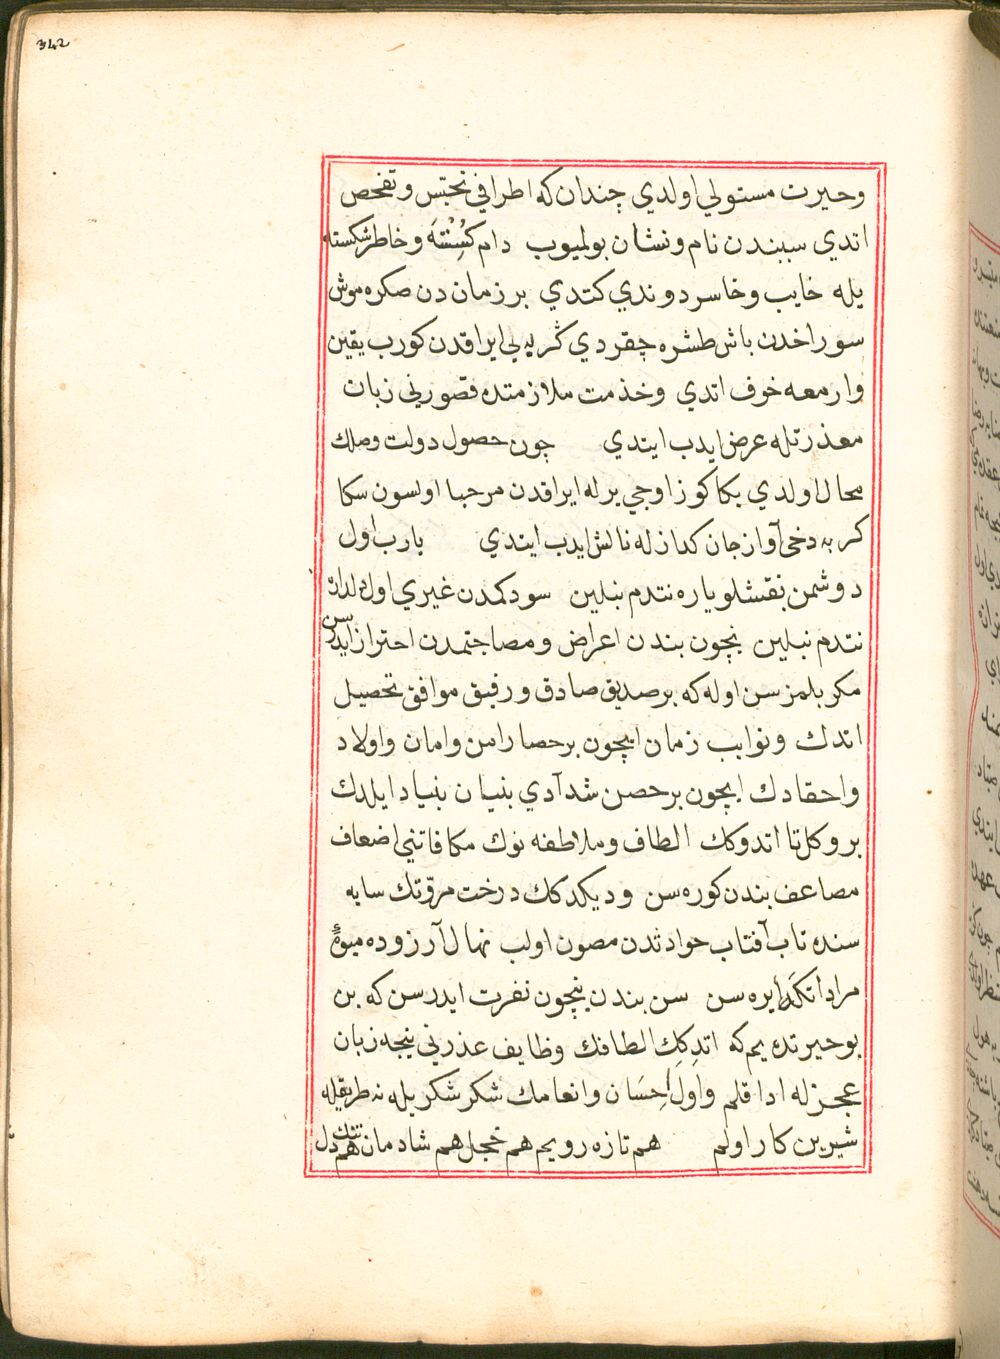 342
وحيرت مستولي اولدي چندان كه اطرافي تجسّس وتفحص
اتدي سببندن نام ونشان بولميوب دام كُسِسْتَه وخاطر شكسته
يله خايب وخاسر دوندي كتدي بر زمان دن صكره موش
سوراخدن باش طشره چقردي كربه يي ايراقدن كورب يقين
وارمغه خوف اتدي وخذمت ملازمتده قصوريني زبان
معذرتله عرض ايدب ايتدي چون حصول دولت وصلك
محال اولدي بكا كوز اوجي بر له ايراقدن مرحبا اولسون سكا
كربه دخي آواز جان كدازله نالش ايدب ايتدي يارب اول
دوشمن نقشلو ياره نتدم بنلين سودكمدن غيري اول دلداره
نتدم نبلين نچون بندن اعراض ومصاحبتمدن احتراز ايدرسن
مكر بلمزسن اوله كه بر صديق صادق ورفيق موافق تحصيل
اتدك ونوايب زمان ايچون بر حصار امن وامان واولاد
واحفادك ايچون بر حصن شدآدي بنيان بنياد ايلدك
بروكل تا اتدوكك الطاف وملاطفه نوك مكافاتني اضعاف
مصاعف بندن كوره سن وديكدكك درخت مروّتك سايه
سنده تاب آفتاب حوادثدن مصون اولب نهال آرزوده ميوهٔ
مراداتكه ايره سن سن بندن نيچون نفرت ايدرسن كه بن
بو حيرتده يم كه اتدِكِك الطافك وظايف عذرني نيجه زبان
عجزله ادا قلم واول اِحِسَان وانعامك شكر شكريله نه طريقله
شيرين كار اولم هم تازه رويم هم خجل هم شادمان هم تنك دل